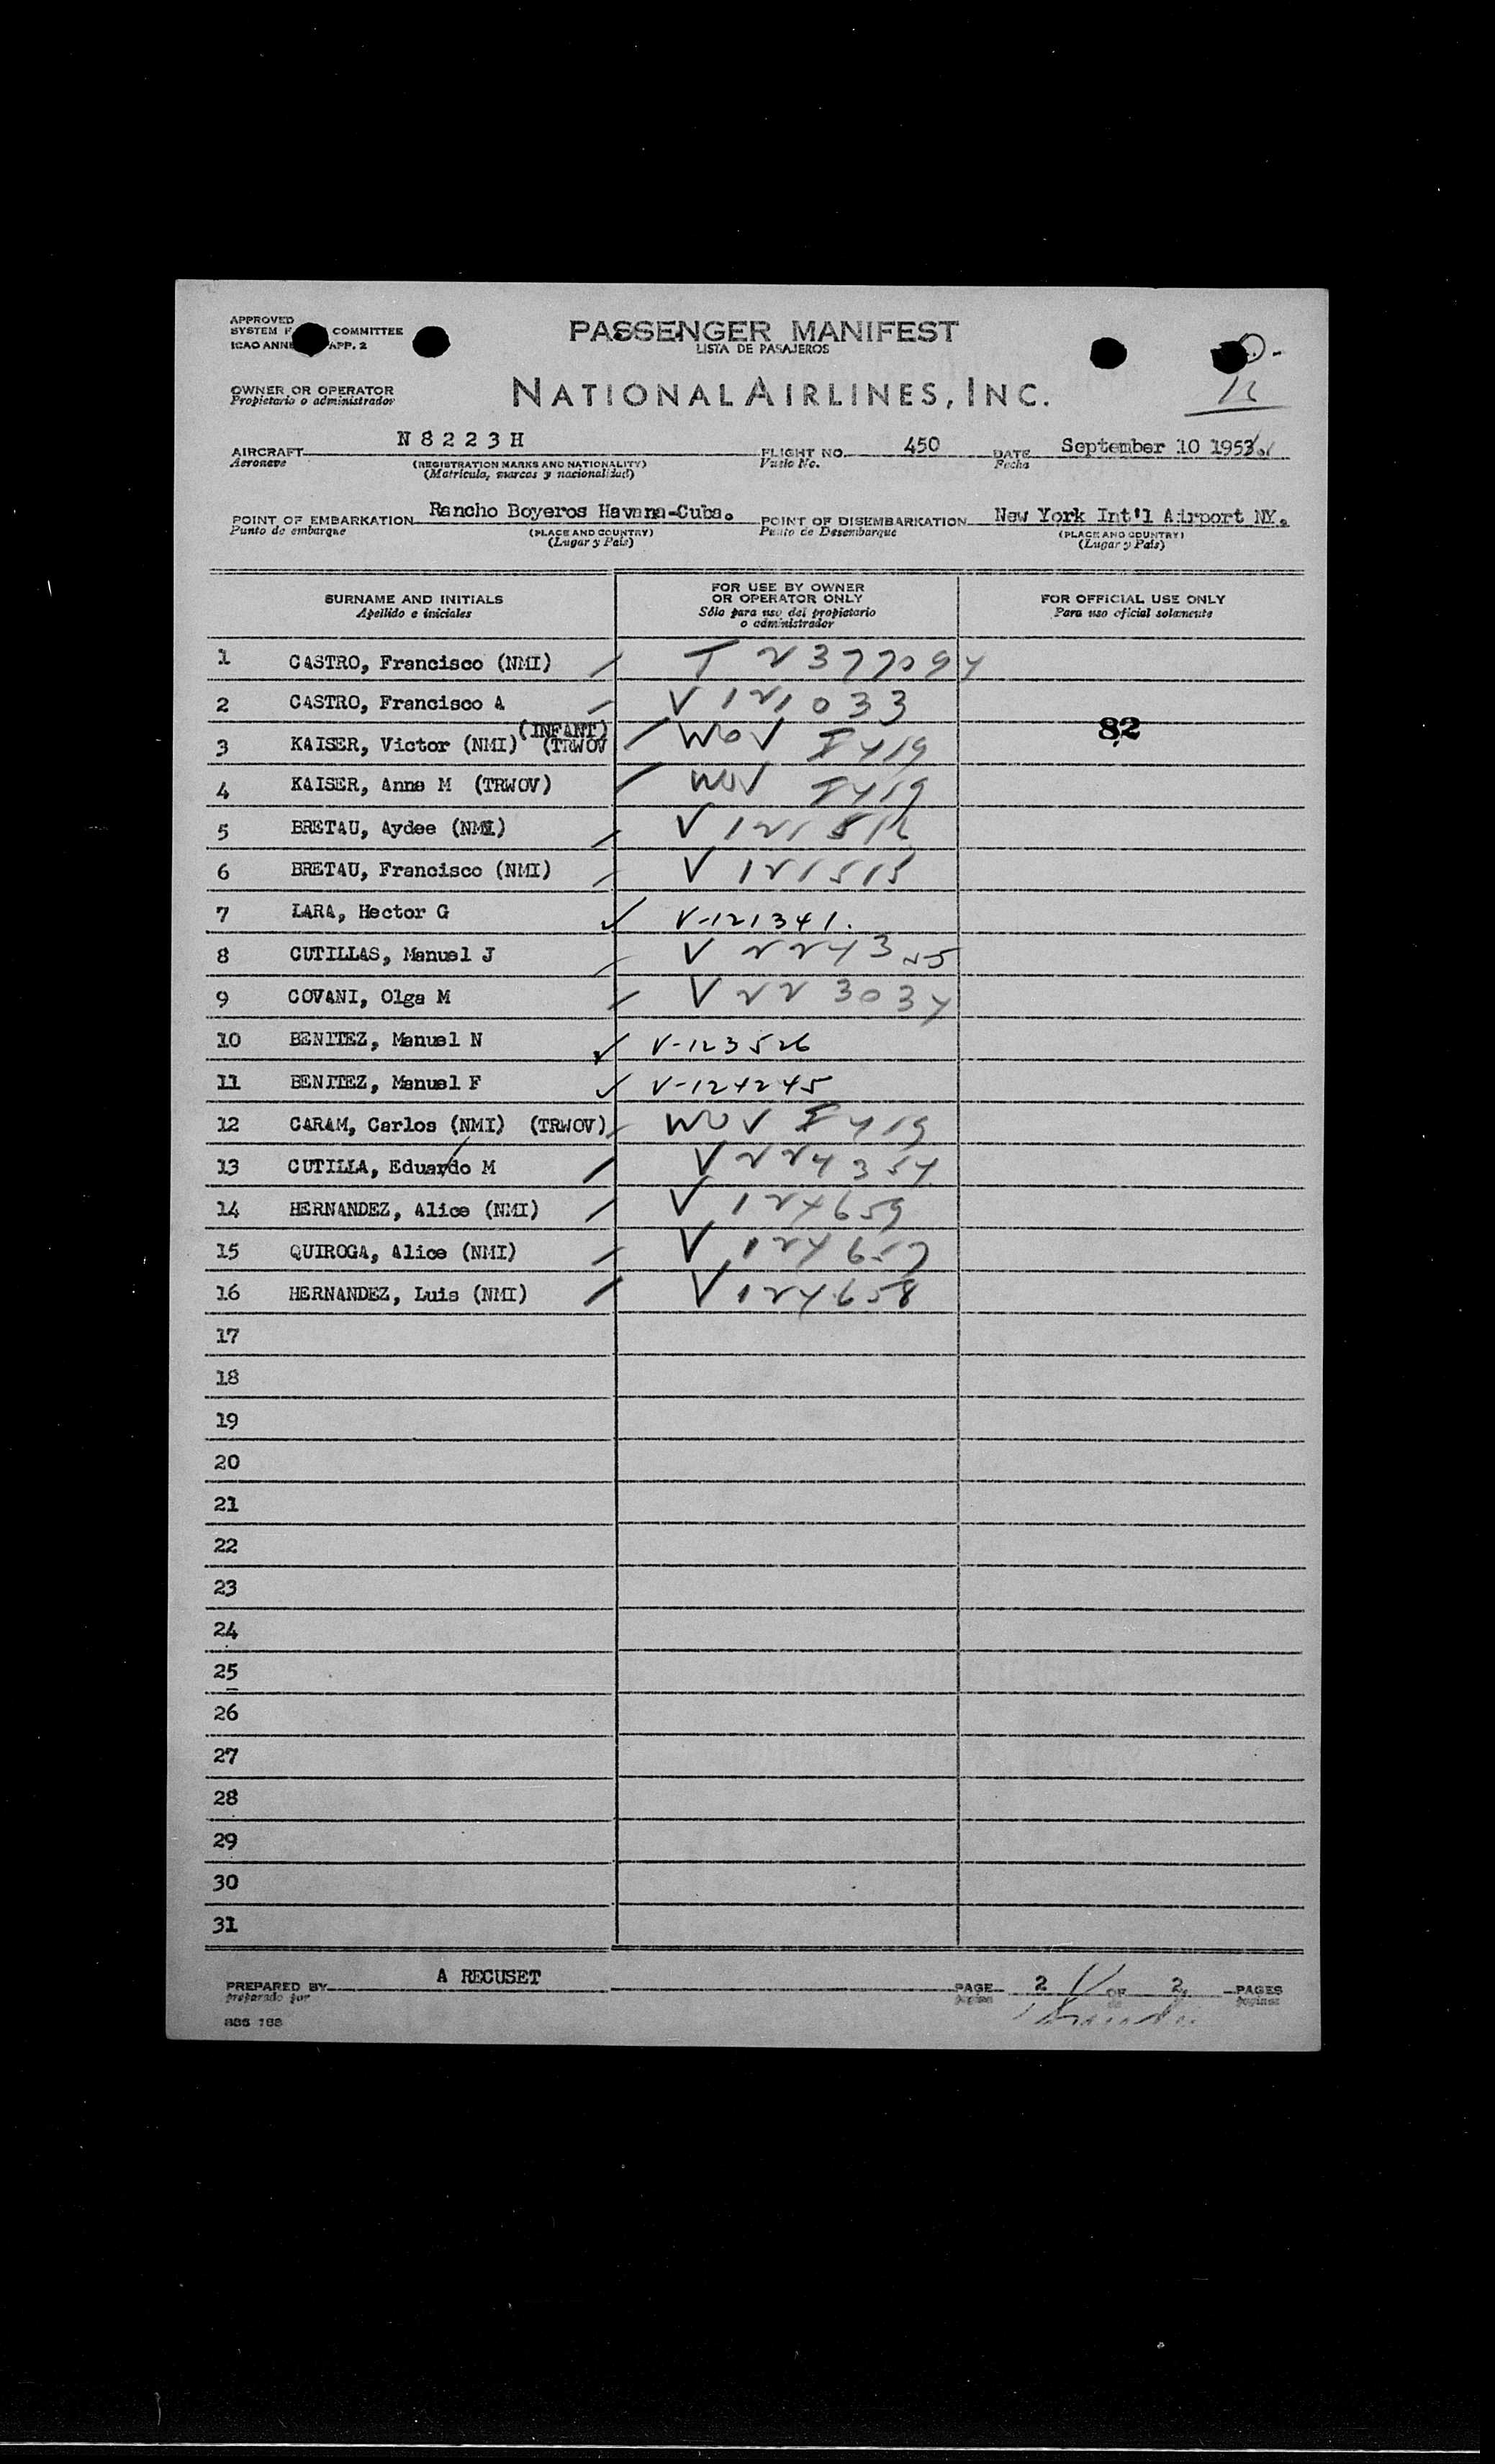 APPROVED
SYSTEM F COMMITTEE
ICAO ANNE APP. 2
PASSENGER MANIFEST
LISTA DE PASAJEROS
OWNER OR OPERATOR
Propietario o administrador
NATIONAL AIRLINES, INC.
AIRCRAFT N 8 2 2 3 H FLIGHT NO. 450 DATE September 10 1953
Aeronave (REGISTRATION MARKS AND NATIONALITY) Vuelo No. Fecha
(Matrícula, marcas y nacionalidad)
POINT OF EMBARKATION Rancho Boyeros Havana-Cuba. POINT OF DISEMBARKATION New York Int'l Airport NY.
Punto de embarque (PLACE AND COUNTRY) Punto de Desembarque (PLACE AND COUNTRY)
(Lugar y País) (Lugar y País)
SURNAME AND INITIALS
Apellido e iniciales
FOR USE BY OWNER
OR OPERATOR ONLY
Sólo para uso del propietario
o administrador
FOR OFFICIAL USE ONLY
Para uso oficial solamente
1 CASTRO, Francisco (NMI) T 2377094
2 CASTRO, Francisco A V 121033
82
(INFANT)
3 KAISER, Victor (NMI) (TRWOV WOV I 419
4 KAISER, Anne M (TRWOV) WOV I 419
5 BRETAU, Aydee (NMI) V 121512
6 BRETAU, Francisco (NMI) V 121515
7 LARA, Hector G V-121341.
8 CUTILLAS, Manuel J V 224325
9 COVANI, Olga M V 223034
10 BENITEZ, Manuel N V-123526
11 BENITEZ, Manuel F V-124245
12 CARAM, Carlos (NMI) (TRWOV) WOV I 419
13 CUTILLA, Eduardo M V 224354
14 HERNANDEZ, Alice (NMI) V 124659
15 QUIROGA, Alice (NMI) V 124657
16 HERNANDEZ, Luis (NMI) V 124658
17
18
19
20
21
22
23
24
25
26
27
28
29
30
31
PREPARED BY A RECUSET PAGE 2 OF 2 PAGES
preparado por página de páginas